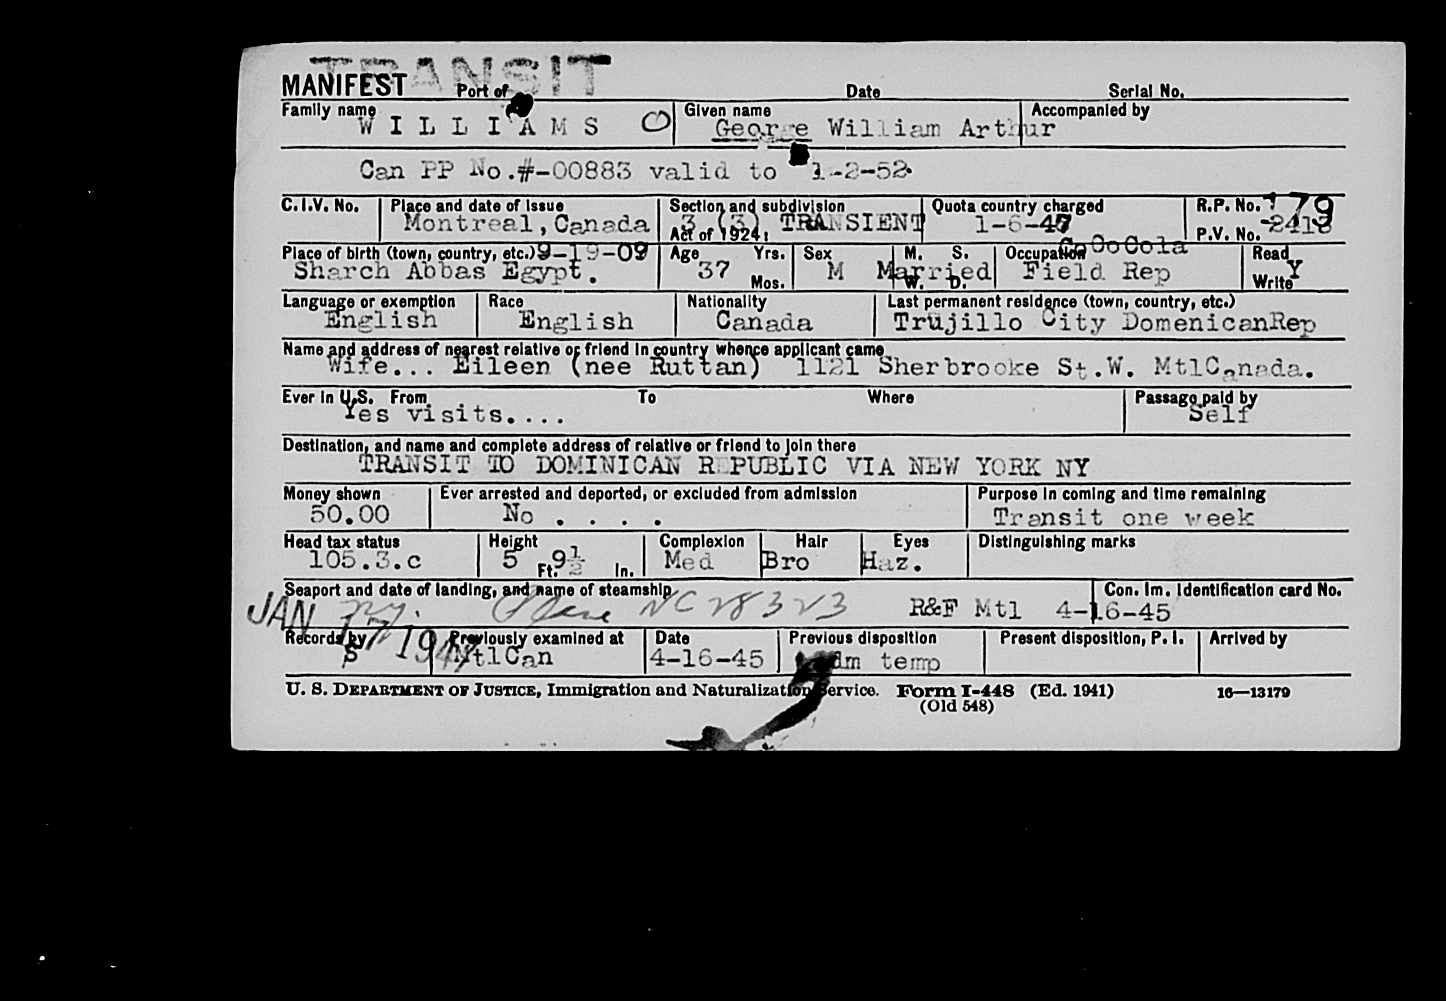 TRANSIT
MANIFEST Port of Date Serial No.
Family name Given name Accompanied by
WILLIAMS George William Arthur
Can PP No.#-00883 valid to 1-2-52
C.I.V. No. Place and date of issue Section and subdivision Quota country charged R.P. No. 179
Montreal, Canada 3 (3) TRANSIENT 1-6-47 -2418
Act of 1924: P.V. No.
CoCoCola
Place of birth (town, country, etc.) 9-19-09 Age Yrs. Sex M. S. Occupation Read
Sharch Abbas Egypt. 37 M Married Field Rep Y
Mos. W. D. Write
Language or exemption Race Nationality Last permanent residence (town, country, etc.)
English English Canada Trujillo City DomenicanRep
Name and address of nearest relative or friend in country whence applicant came
Wife... Eileen (nee Ruttan) 1121 Sherbrooke St.W. MtlCanada.
Ever in U.S. From To Where Passage paid by
Yes visits.... Self
Destination, and name and complete address of relative or friend to join there
TRANSIT TO DOMINICAN REPUBLIC VIA NEW YORK NY
Money shown Ever arrested and deported, or excluded from admission Purpose in coming and time remaining
50.00 No . . . . Transit one week
Head tax status Height Complexion Hair Eyes Distinguishing marks
105.3.c 5 Ft. 9½ In. Med Bro Haz.
Seaport and date of landing, and name of steamship Con. Im. Identification card No.
ny. Plane NC 28323 R&F Mtl 4-16-45
JAN 17 1947
Records by Previously examined at Date Previous disposition Present disposition, P. I. Arrived by
S MtlCan 4-16-45 Adm temp
U. S. Department of Justice, Immigration and Naturalization Service. Form I-448 (Ed. 1941) 16—13179
(Old 548)